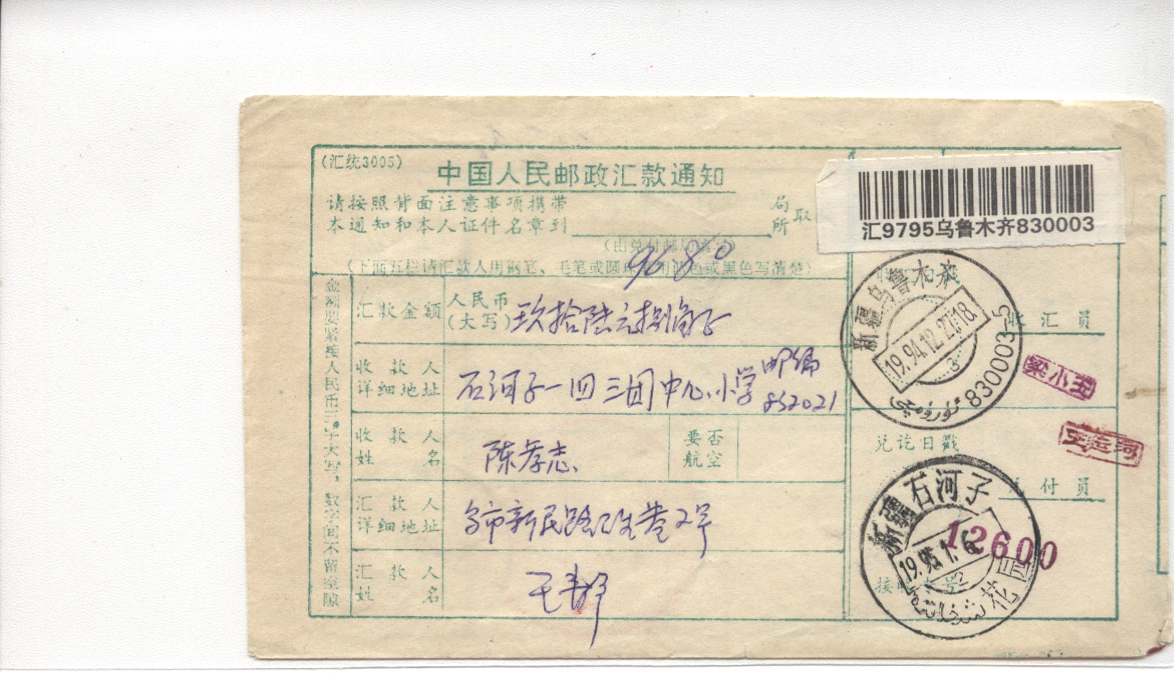 (汇统3005)
中国人民邮政汇款通知
请按照背面注意事项携带
本通知和本人证件名章到 局所取
汇9795乌鲁木齐830003
(下面五栏请汇款人用钢笔、毛笔或圆珠笔用蓝色或黑色写清楚)
96 80
金额要紧接人民币三字大写，数字间不留空隙
汇款金额 人民币(大写) 玖拾陆元捌角正
收款人详细地址 石河子一四三团中心小学 邮编832021
收款人姓名 陈孝志 要否航空
汇款人详细地址 乌市新民路 巷2号
汇款人姓名 王
新疆乌鲁木齐
19.94.12.27.18
3
830003-5
汇员
梁小
兑讫日戳
运河
付员
新疆石河子
19.95.1.6
花园
12600